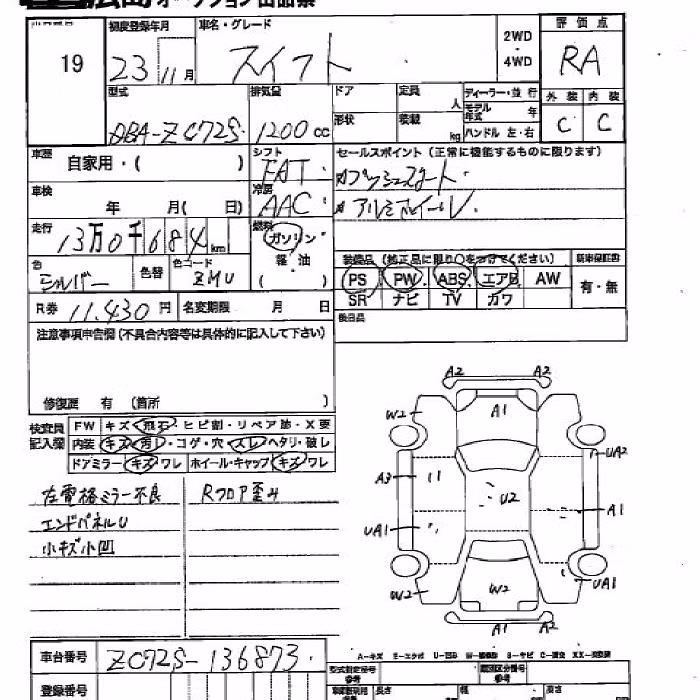 広島オークション出品票
19
初度登録年月
23 11月
車名・グレード
スイフト
2WD
・
4WD
評価点
RA
型式
DBA-ZC72S
排気量
1200cc
ドア
定員
人
形状
積載
kg
ディーラー・並行
モデル年式 年
ハンドル 左・右
外装 内装
C C
車歴
自家用・( )
シフト
FAT
車検
年 月( 日)
冷房
AAC
セールスポイント (正常に機能するものに限ります)
プッシュスタート
アルミホイール
走行
13万0千684km
燃料
ガソリン・
軽油
( )
色
シルバー
色替
色コード
ZMU
装備品 (純正品に限り○をつけてください)
PS PW ABS エアB AW
SR ナビ TV カワ
新車保証書
有・無
R券 11,430円
名変期限 月 日
後日品
注意事項申告欄 (不具合内容等は具体的に記入して下さい)
修復歴 有 (箇所 )
検査員
記入欄
FW キズ・飛石・ヒビ割・リペア跡・X要
内装 キズ・汚れ・コゲ・穴・スレ・ヘタリ・破レ
ドアミラー キズ ワレ ホイール・キャップ キズ ワレ
左電格ミラー不良
Rフロア歪み
エンドパネルU
小キズ小凹
A2 A2
A1
W2
UA2
A3
U2
A1
UA1
UA1
W2
W2
A1 A2
車台番号
ZC72S-136873
登録番号
型式指定番号
参考
類別区分番号
参考
長さ
幅
高さ